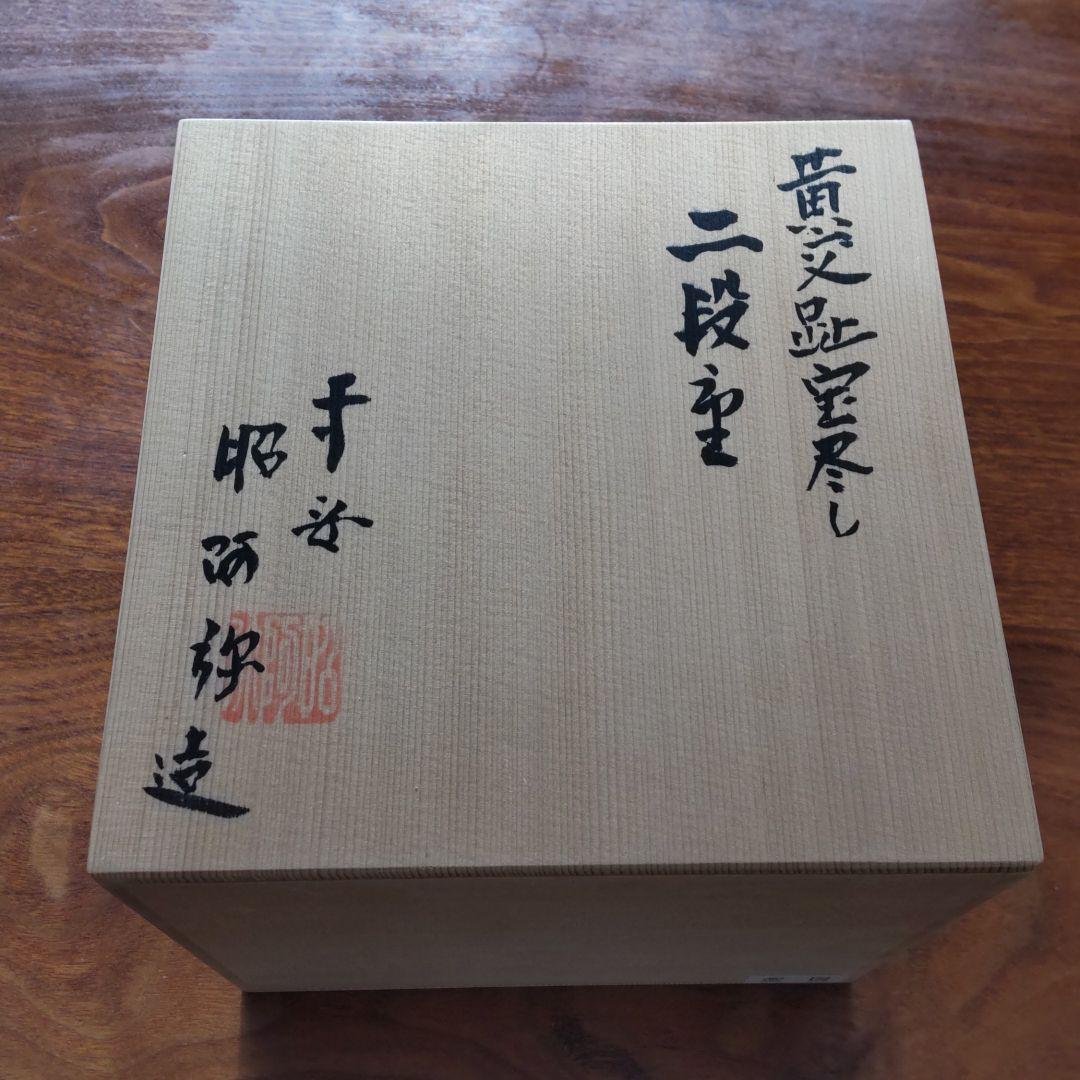 黄交趾宝尽し
二段重
寸谷
昭阿弥造